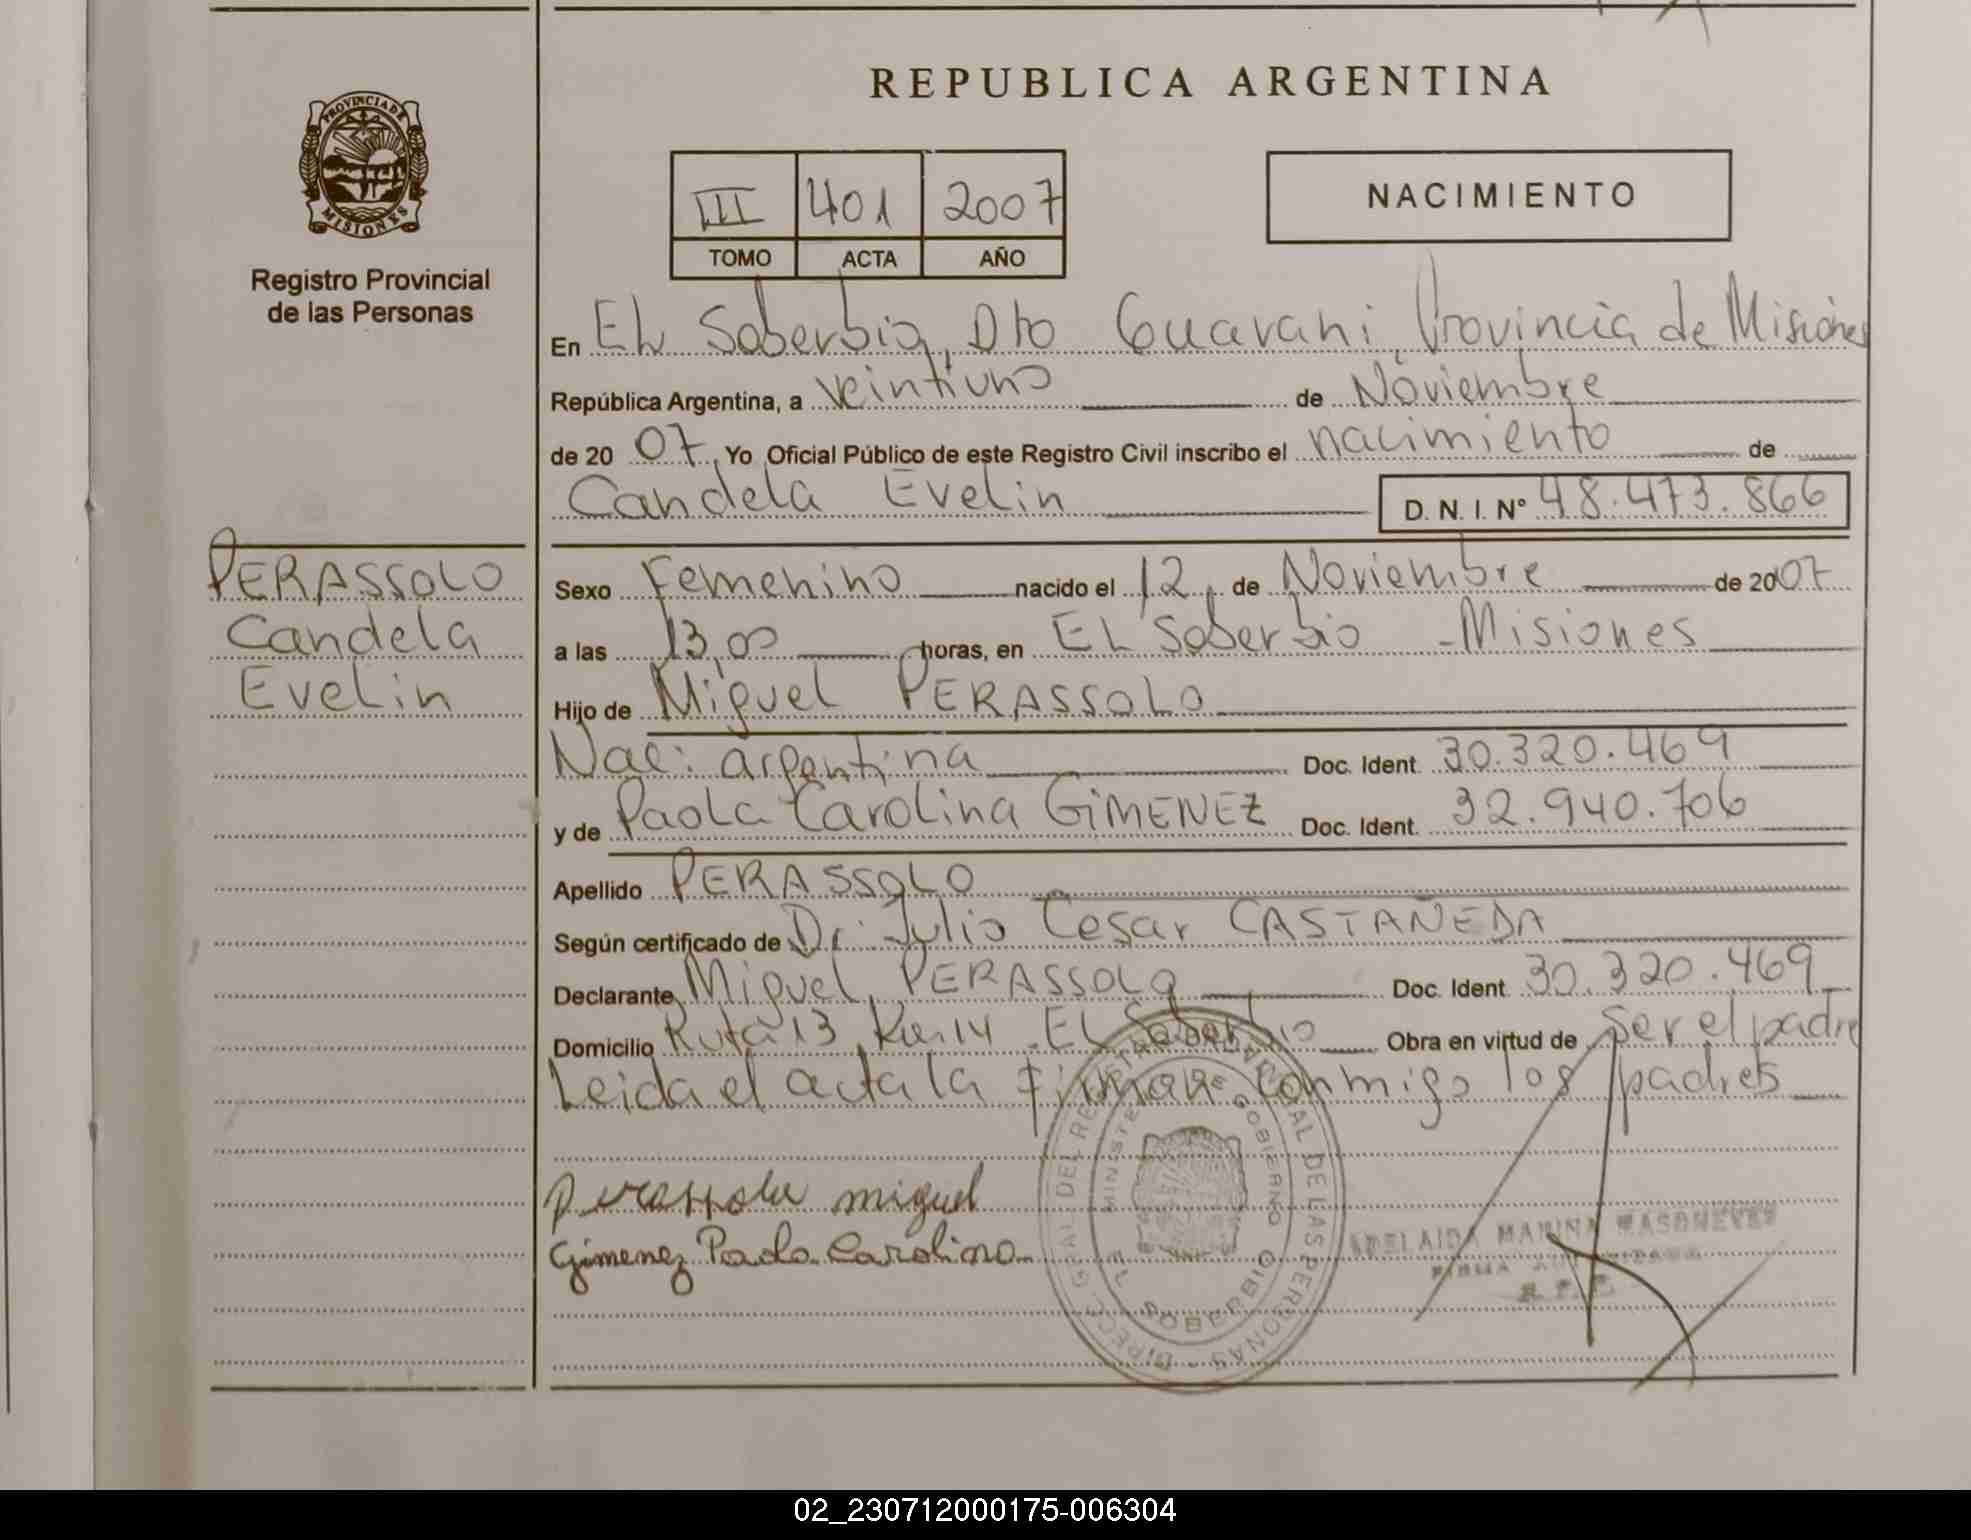 REPUBLICA ARGENTINA
PROVINCIA DE MISIONES
Registro Provincial
de las Personas
III 401 2007
TOMO ACTA AÑO
NACIMIENTO
En EL Soberbio, Dto Guarani, Provincia de Misiones
República Argentina, a veintiuno de Noviembre
de 20 07. Yo Oficial Público de este Registro Civil inscribo el nacimiento de
Candela Evelin D. N. I. N° 48.473.866
PERASSOLO
Candela
Evelin
Sexo Femenino nacido el 12, de Noviembre de 2007
a las 13,00 horas, en EL Soberbio - Misiones
Hijo de Miguel PERASSOLO
Nac: argentina Doc. Ident. 30.320.469
y de Paola Carolina GIMENEZ Doc. Ident. 32.940.706
Apellido PERASSOLO
Según certificado de Dr. Julio Cesar CASTAÑEDA
Declarante Miguel PERASSOLO Doc. Ident. 30.320.469
Domicilio Ruta 13, Km 14 - EL Soberbio Obra en virtud de ser el padre
Leida el acta la firman conmigo los padres
Perassolo miguel
Gimenez Paola Carolina
DIRECC. GRAL. DEL REGISTRO PROVINCIAL DE LAS PERSONAS
MINISTERIO DE GOBIERNO
EL SOBERBIO
ADELAIDA MARINA
FIRMA AUTORIZADA
02_230712000175-006304